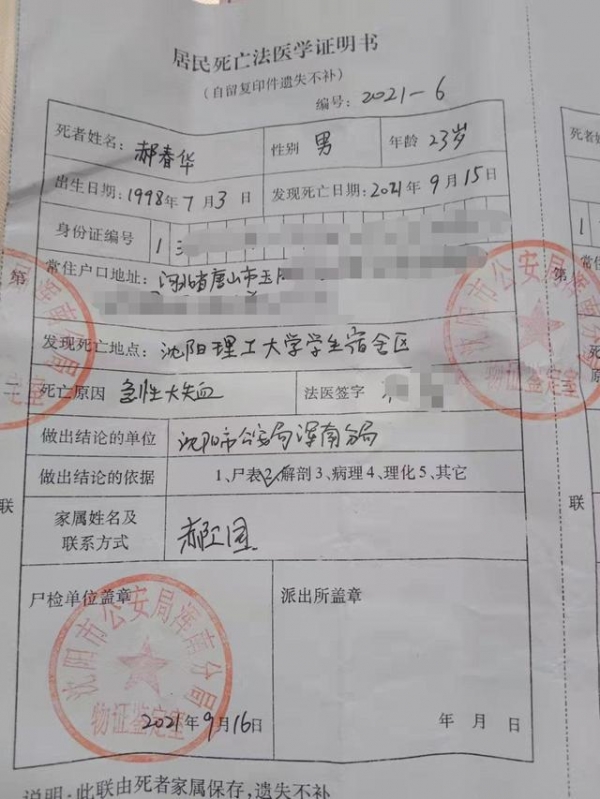 居民死亡法医学证明书
(自留复印件遗失不补)
编号: 2021-6
死者姓名: 郝春华 性别 男 年龄 23岁
出生日期: 1998年7月3日 发现死亡日期: 2021年9月15日
身份证编号 1
常住户口地址: 河北省唐山市玉
发现死亡地点: 沈阳理工大学学生宿舍区
死亡原因 急性大失血 法医签字
做出结论的单位 沈阳市公安局浑南分局
做出结论的依据 1、尸表2、解剖3、病理4、理化5、其它
家属姓名及
联系方式
郝江国
尸检单位盖章 派出所盖章
沈阳市公安局浑南分局
物证鉴定室
2021年9月16日 年 月 日
说明:此联由死者家属保存,遗失不补
第
二
联
沈阳市公安局浑南分局
物证鉴定室
第
联
死者姓
出生
1
常住
发现
死亡
做